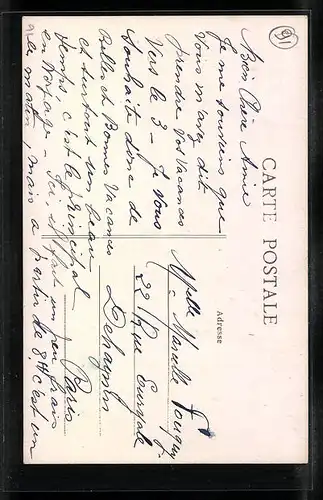 CARTE POSTALE
91
Bien Chère Amie
Je me souviens que
Vous m'avez dit
prendre vos vacances
vers le 3 - Je vous
souhaite donc de
Belles et Bonnes Vacances
et surtout un beau
temps, c'est le principal
en voyage - Ici, il fait un peu frais
le matin, mais à partir de 8H c'est un
Adresse
Melle Marcelle
22 Rue
Paris